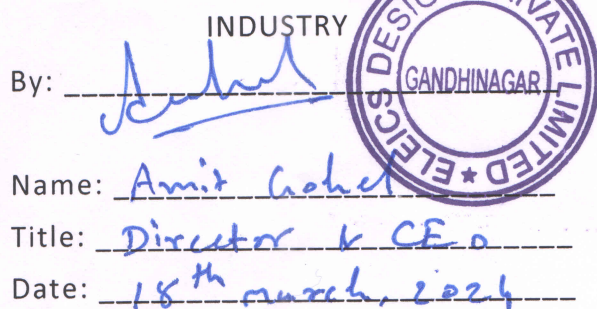 INDUSTRY
ELEICS DESIGN PRIVATE LIMITED ★
GANDHINAGAR
By:
Name: Amit Gohel
Title: Director & CEO
Date: 18th march, 2024